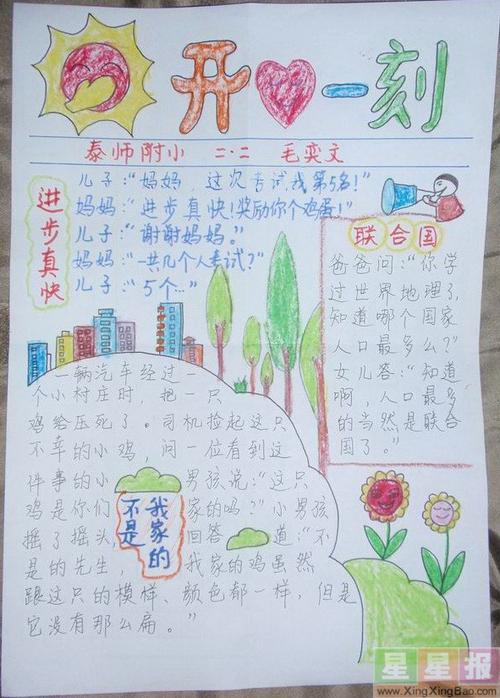 开心一刻
泰师附小 二·二 毛奕文
进步真快
儿子：“妈妈，这次考试我第5名！”
妈妈：“进步真快！奖励你个鸡蛋！”
儿子：“谢谢妈妈。”
妈妈：“一共几个人考试？”
儿子：“5个…”
联合国
爸爸问：“你学
过世界地理了，
知道哪个国家
人口最多么？”
女儿答：“知道
啊，人口最多
的当然是联合
国了。”
我家的
不是
一辆汽车经过一
个小村庄时，把一只
鸡给压死了。司机捡起这只
不幸的小鸡，问一位看到这
件事的小男孩说：“这只
鸡是你们家的吗？”小男孩
摇了摇头，回答道：“不
是的先生，我家的鸡虽然
跟这只的模样、颜色都一样，但是
它没有那么扁。”
星星报
www.XingXingBao.com